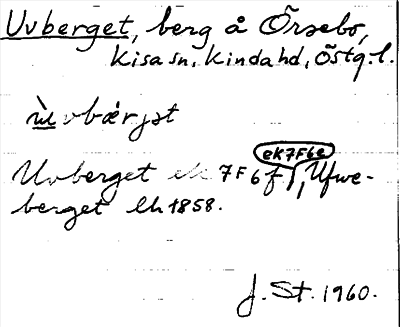 Uvberget, berg å Örsebo,
Kisa sn, Kinda hd, Östg.l.
ùvbærjət
ek7F6e
Uvberget ek 7F6f, Ufwe-
berget lh 1858.
J. St. 1960.